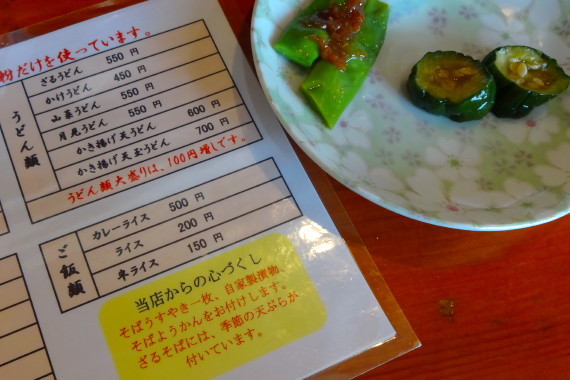 粉だけを使っています。
うどん類
ざるうどん 550 円
かけうどん 450 円
山菜うどん 550 円
月見うどん 550 円
かき揚げ天うどん 600 円
かき揚げ天玉うどん 700 円
うどん類大盛りは、100円増しです。
ご飯類
カレーライス 500 円
ライス 200 円
半ライス 150 円
当店からの心づくし
そばうすやき一枚、自家製漬物、
そばようかんをお付けします。
ざるそばには、季節の天ぷらが
付いています。